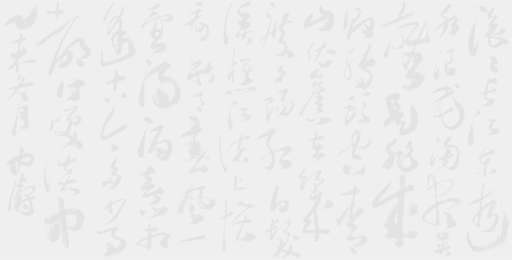 滚滚长江东逝
水浪花淘尽英
雄是非成
败转头空青
山依旧在几
度夕阳红白发
渔樵江渚上惯
看秋月春风一
壶浊酒喜相
逢古今多少事
都付笑谈中
乙未冬月